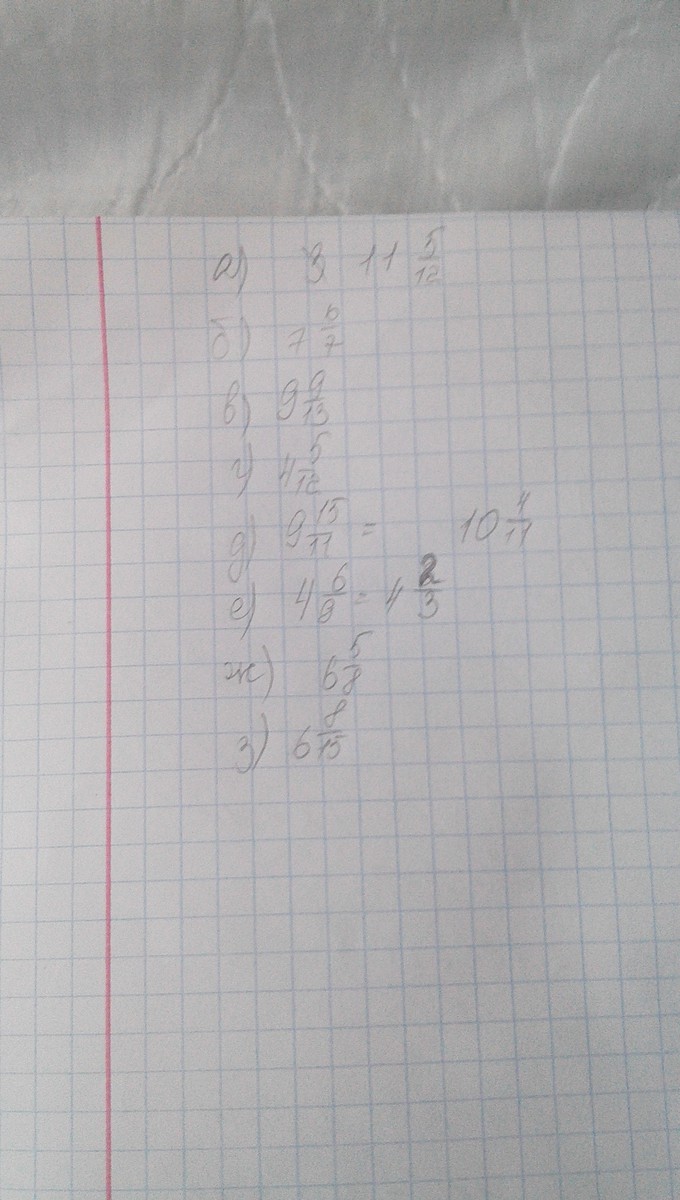 а) 3 11 5/12
б) 7 6/7
в) 9 9/13
г) 4 5/12
д) 9 15/11 = 10 4/11
е) 4 6/9 = 4 2/3
ж) 6 5/8
з) 6 8/15